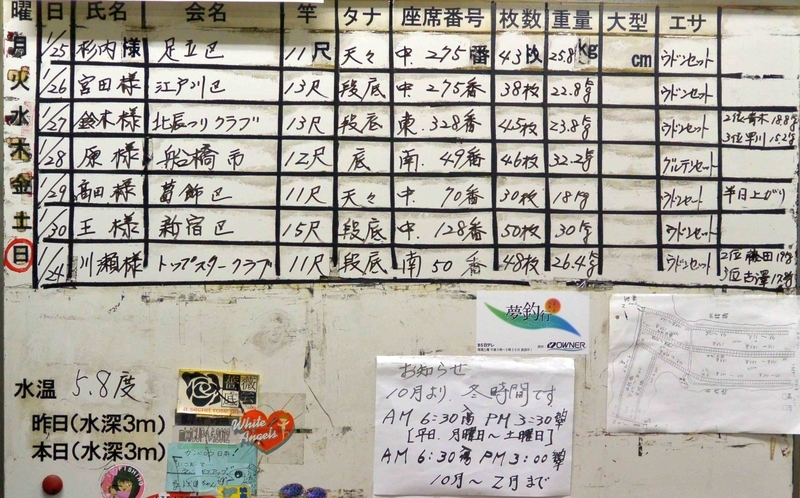 曜 日 氏名 会名 竿 タナ 座席番号 枚数 重量 大型 エサ
月 1/25 杉内様 足立区 11尺 天々 中.275番 43枚 25.8kg cm ウドンセット
火 1/26 宮田様 江戸川区 13尺 段底 中.275番 38枚 22.8kg ウドンセット
水 1/27 鈴木様 北辰つりクラブ 13尺 段底 東.328番 45枚 23.8kg ウドンセット 2位青木18.8kg
3位早川15.2kg
木 1/28 原様 船橋市 12尺 底 南.49番 46枚 32.2kg グルテンセット
金 1/29 髙田様 葛飾区 11尺 天々 中.70番 30枚 18kg ウドンセット 半日上がり
土 1/30 王様 新宿区 15尺 段底 中.128番 50枚 30kg ウドンセット
日 1/24 川瀬様 トップスタークラブ 11尺 段底 南50番 48枚 26.4kg ウドンセット 2位藤田
3位古澤
夢釣行
OWNER
お知らせ
10月より、冬時間です
AM 6:30 PM 3:30
[平日.月曜日〜土曜日]
AM 6:30 PM 3:00
10月〜2月まで
水温 5.8度
昨日(水深3m)
本日(水深3m)
薔薇
a secret rose
White
Angels